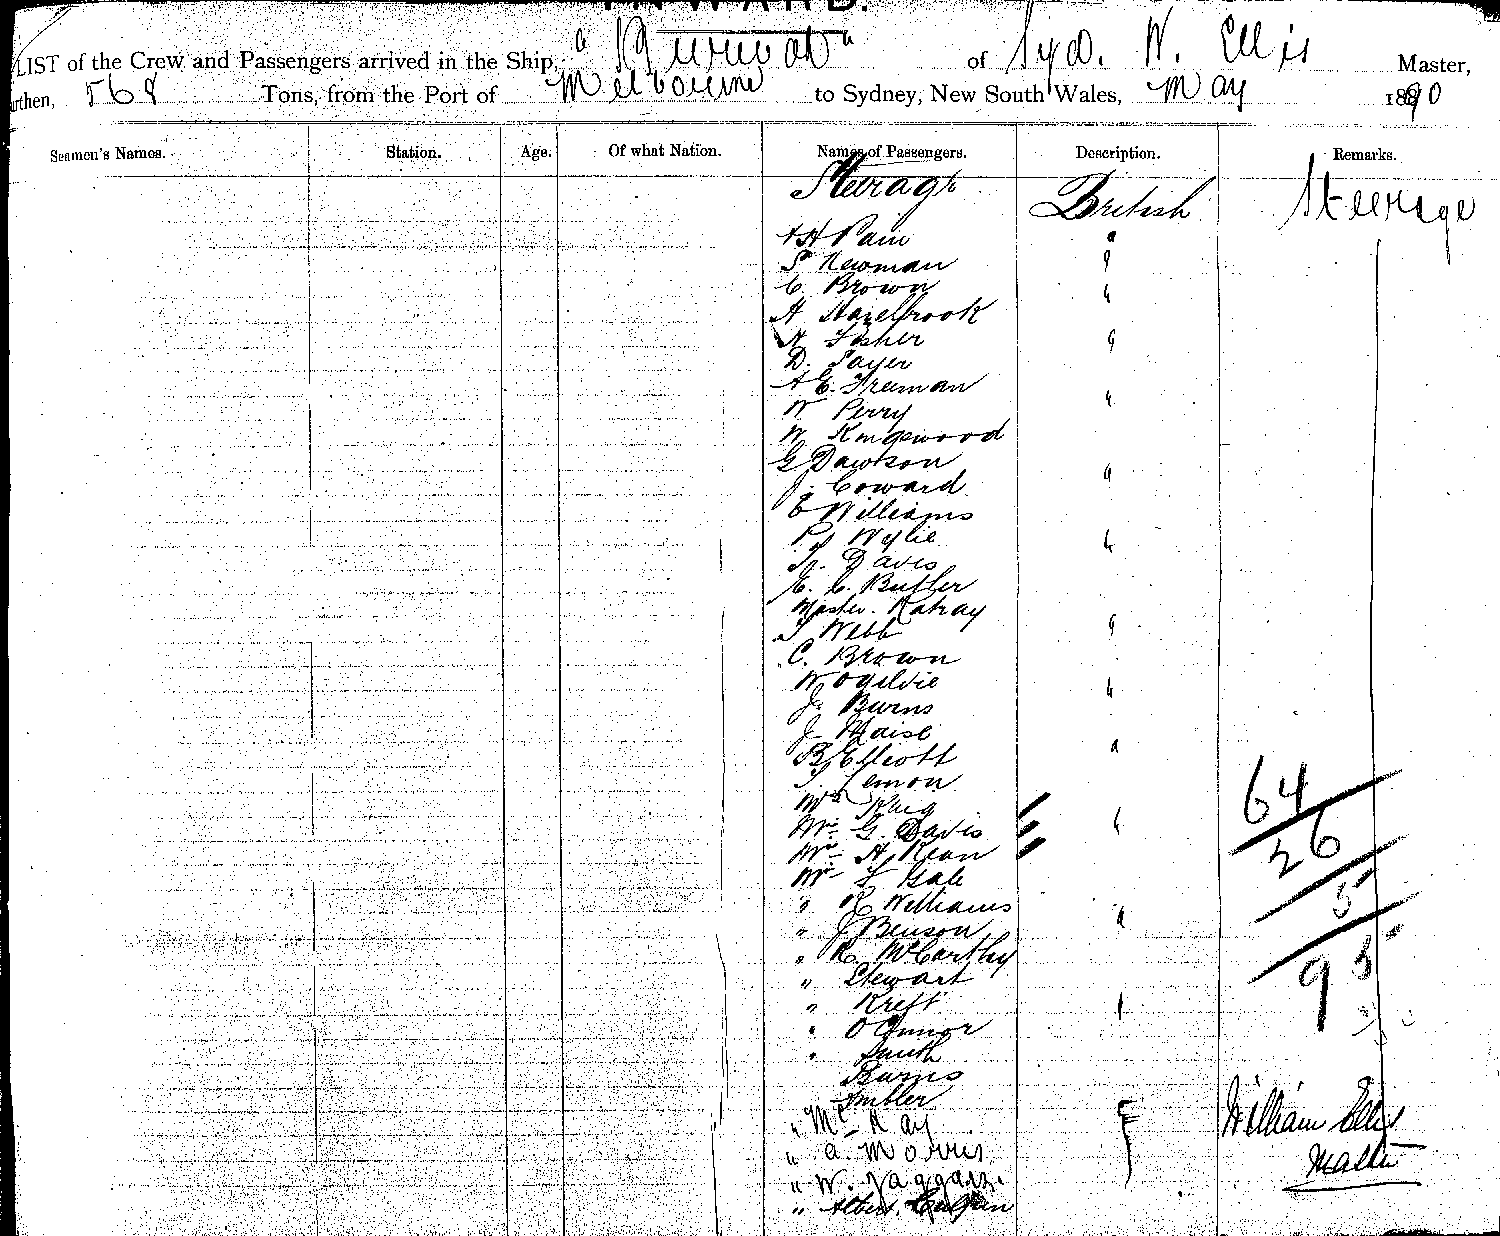 INWARD.
LIST of the Crew and Passengers arrived in the Ship, "Burwah" of Syd. W. Ellis Master,
urthen, 568 Tons, from the Port of Melbourne to Sydney, New South Wales, May 1890
Seamen's Names. Station. Age. Of what Nation. Names of Passengers. Description. Remarks.
Steerage British Steerage
H Pain "
S Newman "
C. Brown "
H Hazelbrook
N Fisher "
D. Sayer
A E. Freeman
W Perry "
W Kingswood
G Dawson
J. Coward "
E Williams
P. J Wylie "
Davis
E. C. Butler
Master. Katray
T Webb "
C. Brown
W Ogilvie "
J. Burns
J Haise
B Elliott "
T Lemon
Mrs King 64
Mr. G. Davis " 26
Mr. H. Kean
Mr F Gale 5
" R Williams
" J Benson "
" R. McCarthy 95
" Stewart
" Kreft "
" O Connor
" Smith
Burns
Ambler
" Mc Kay William Ellis
" A. Morris Master
" W. Jaggars.
" Albert